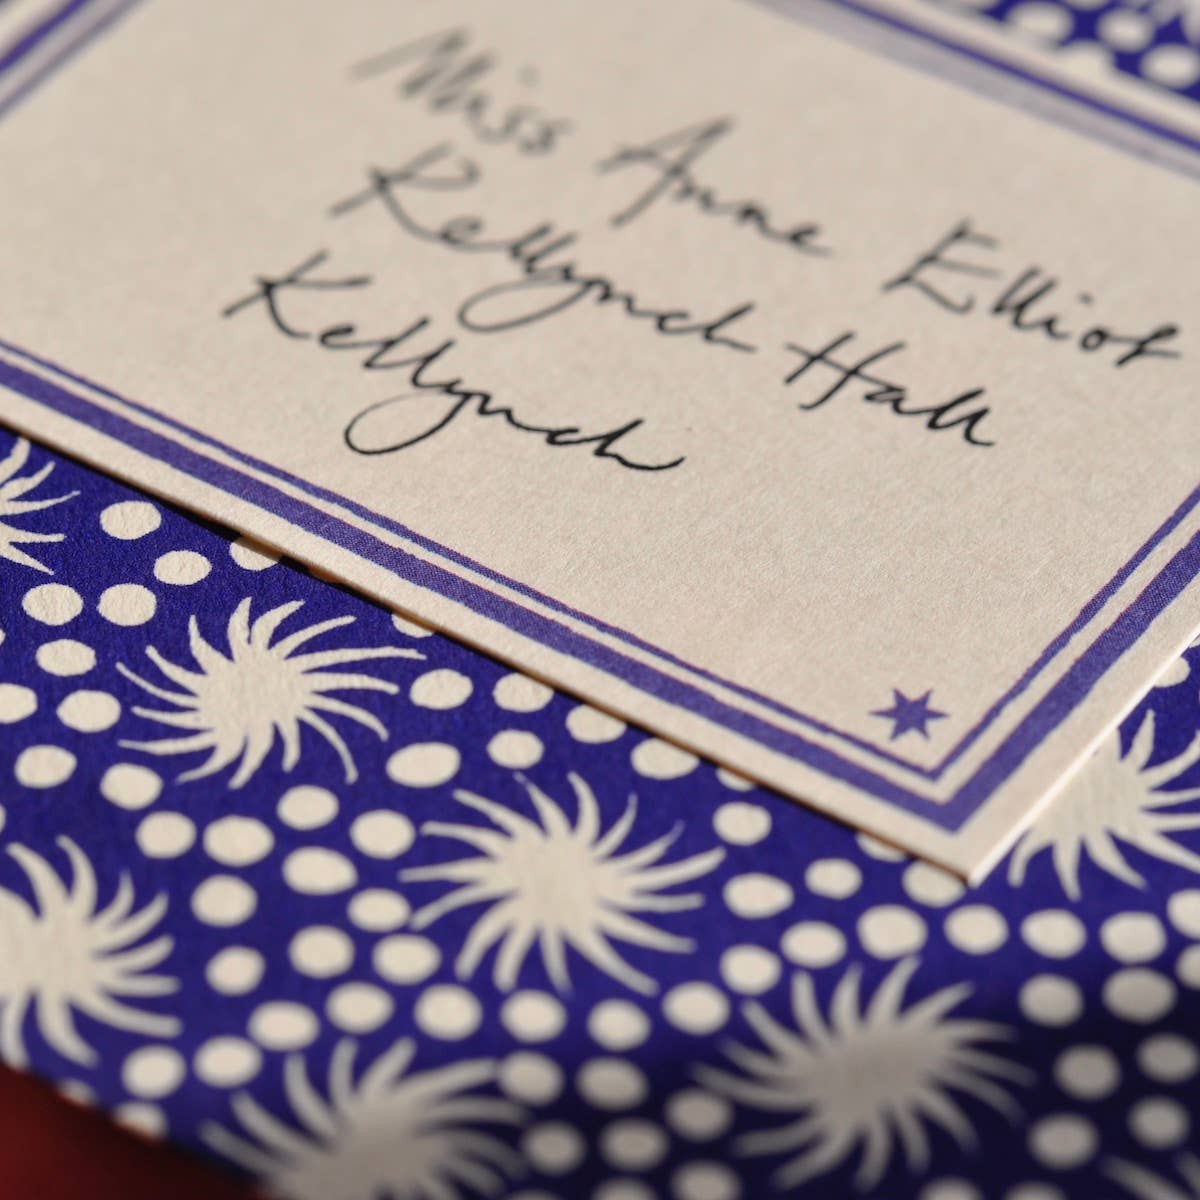 Miss Anne Elliot
Kellynch Hall
Kellynch